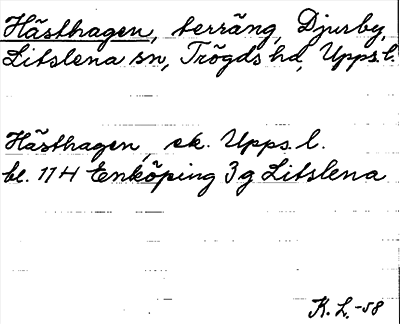 Hästhagen, terräng, Djurby,
Litslena sn, Trögds hd, Upps.l.
Hästhagen, ek. Upps. l.
bl. 11H Enköping 3g Litslena
K. L. -58